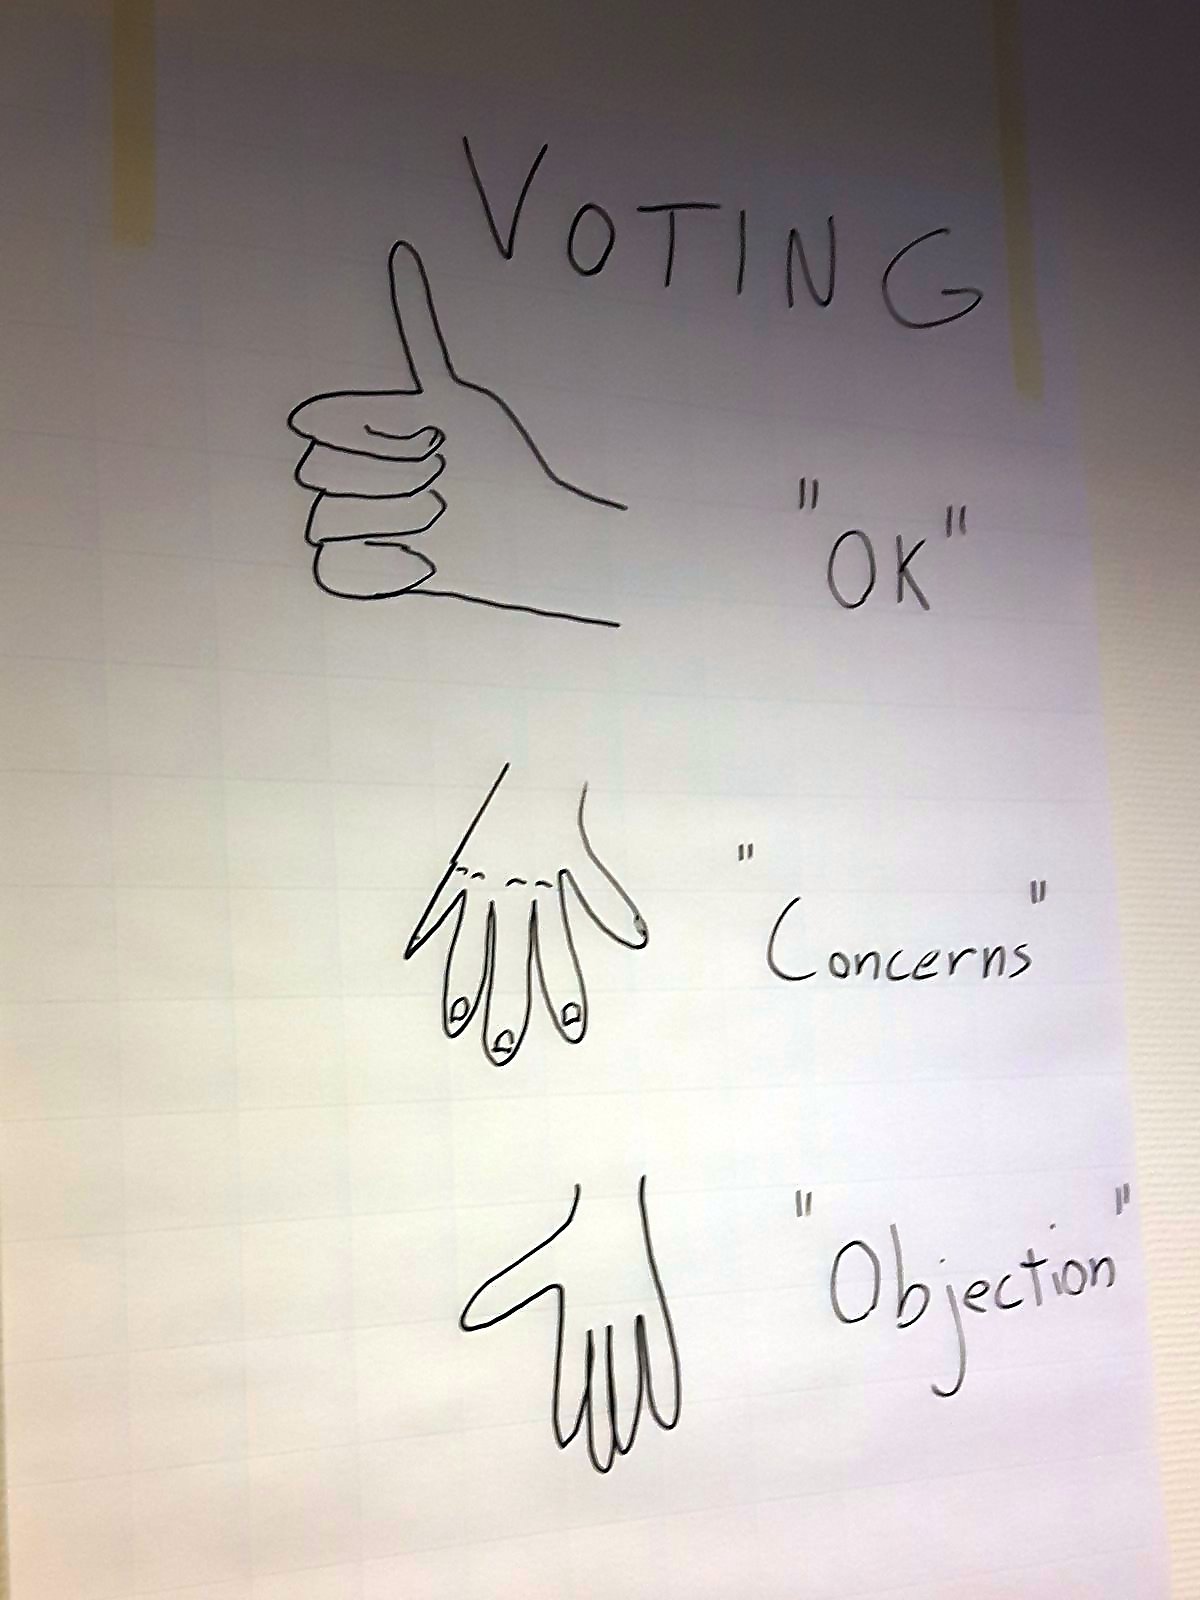 VOTING
"OK"
"Concerns"
"Objection"